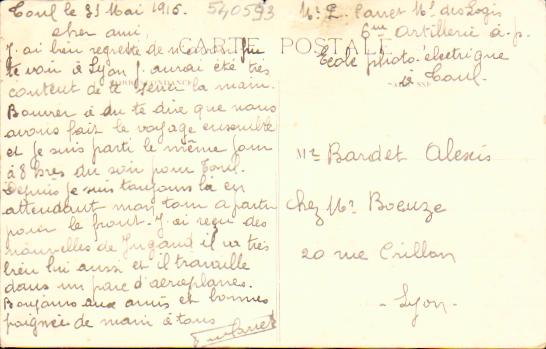 Toul le 31 Mai 1916.
540593
cher ami,
J'ai bien regretté de n'avoir pu
te voir à Lyon j'aurai été très
content de te serrer la main.
Bourrer a du te dire que nous
avons fait le voyage ensemble
et je suis parti le même jour
à 8 hres du soir pour Toul.
Depuis je suis toujours là en
attendant mon tour a partir
pour le front. J'ai reçu des
nouvelles de Jugand il va très
bien lui aussi et il travaille
dans un parc d'aeroplanes.
Bonjours aux amis et bonnes
poignée de main à tous
CARTE POSTALE
CORRESPONDANCE
Mr L. Carret Mis des Logis
6me Artillerie à p.
Ecole photo-électrique
à Toul.
Mr Bardet Alexis
chez Mr Boeuze
20 rue Crillon
- Lyon -